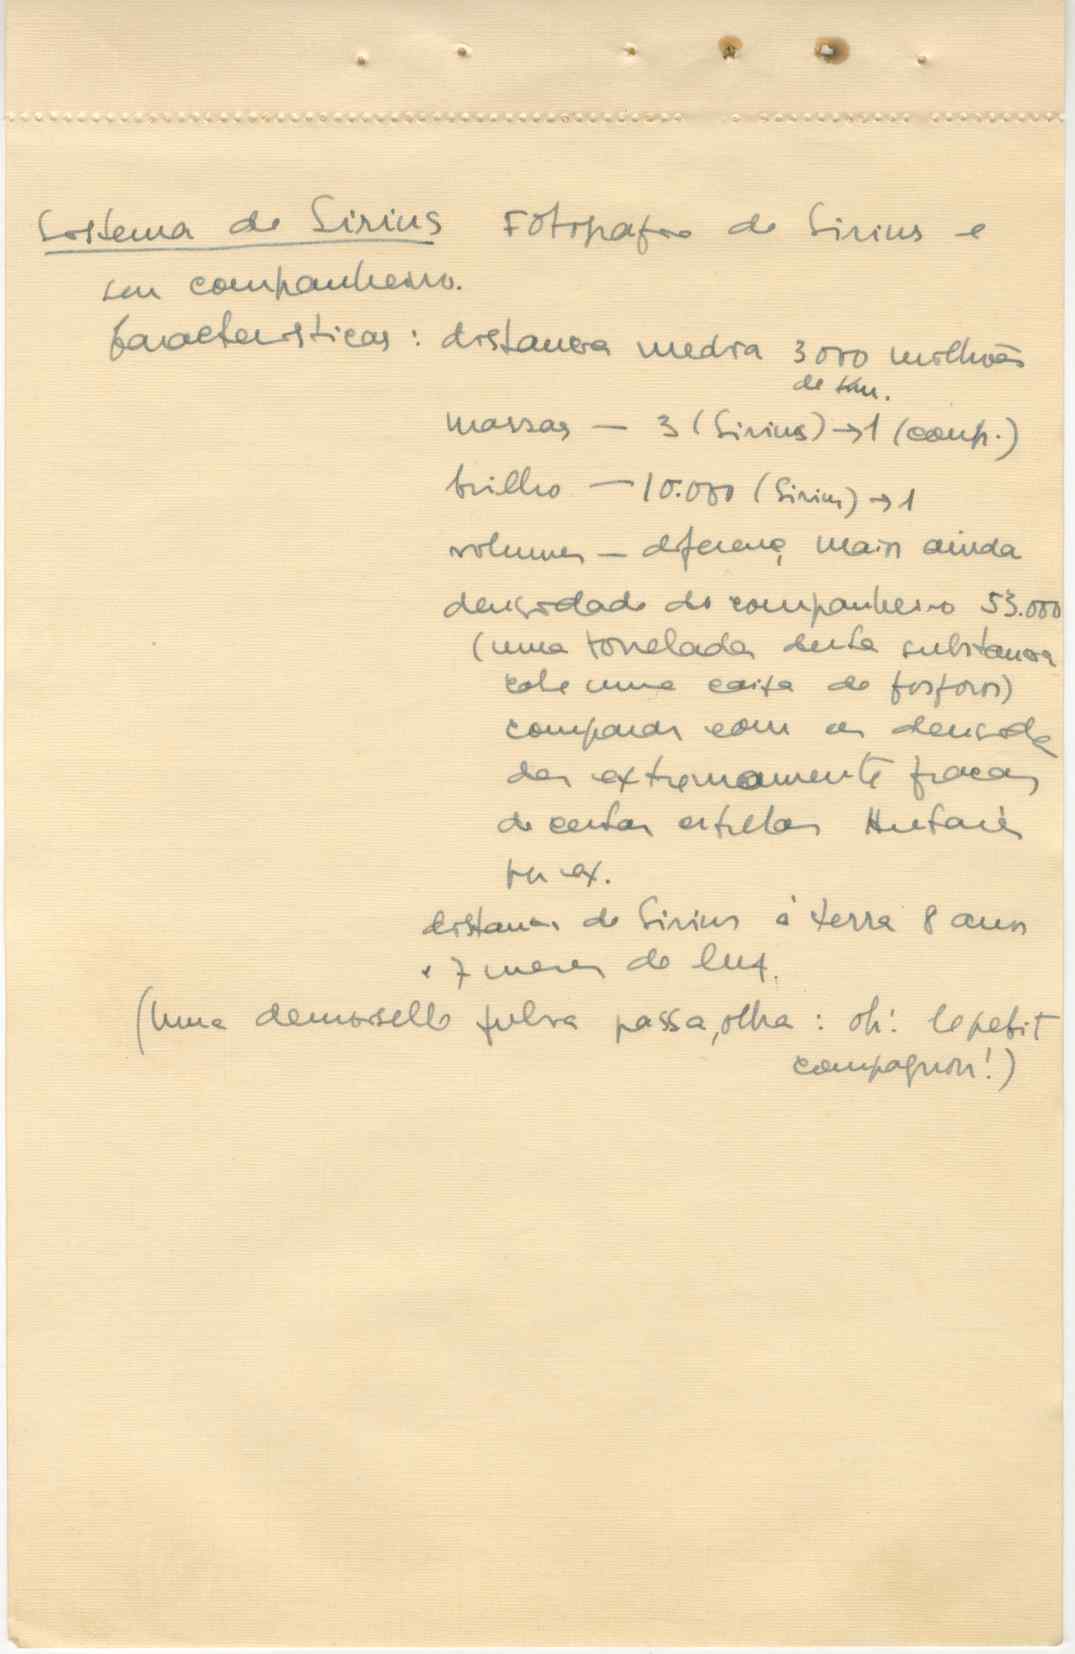 Sistema de Sirius Fotografia de Sirius e
seu companheiro.
Caracteristicas : distancia media 3000 milhões
de km.
massas — 3 (Sirius) → 1 (comp.)
brilho — 10.000 (Sirius) → 1
volumes — diferença maior ainda
densidade do companheiro 53.000
(uma tonelada desta substancia
cabe numa caixa de fosforos)
comparar com as densida
des extremamente fracas
de certas estrellas Antarés
por ex.
distancia de Sirius á terra 8 anos
e 7 meses de luz.
(Uma demoiselle fulva passa, olha : oh! le petit
compagnon!)